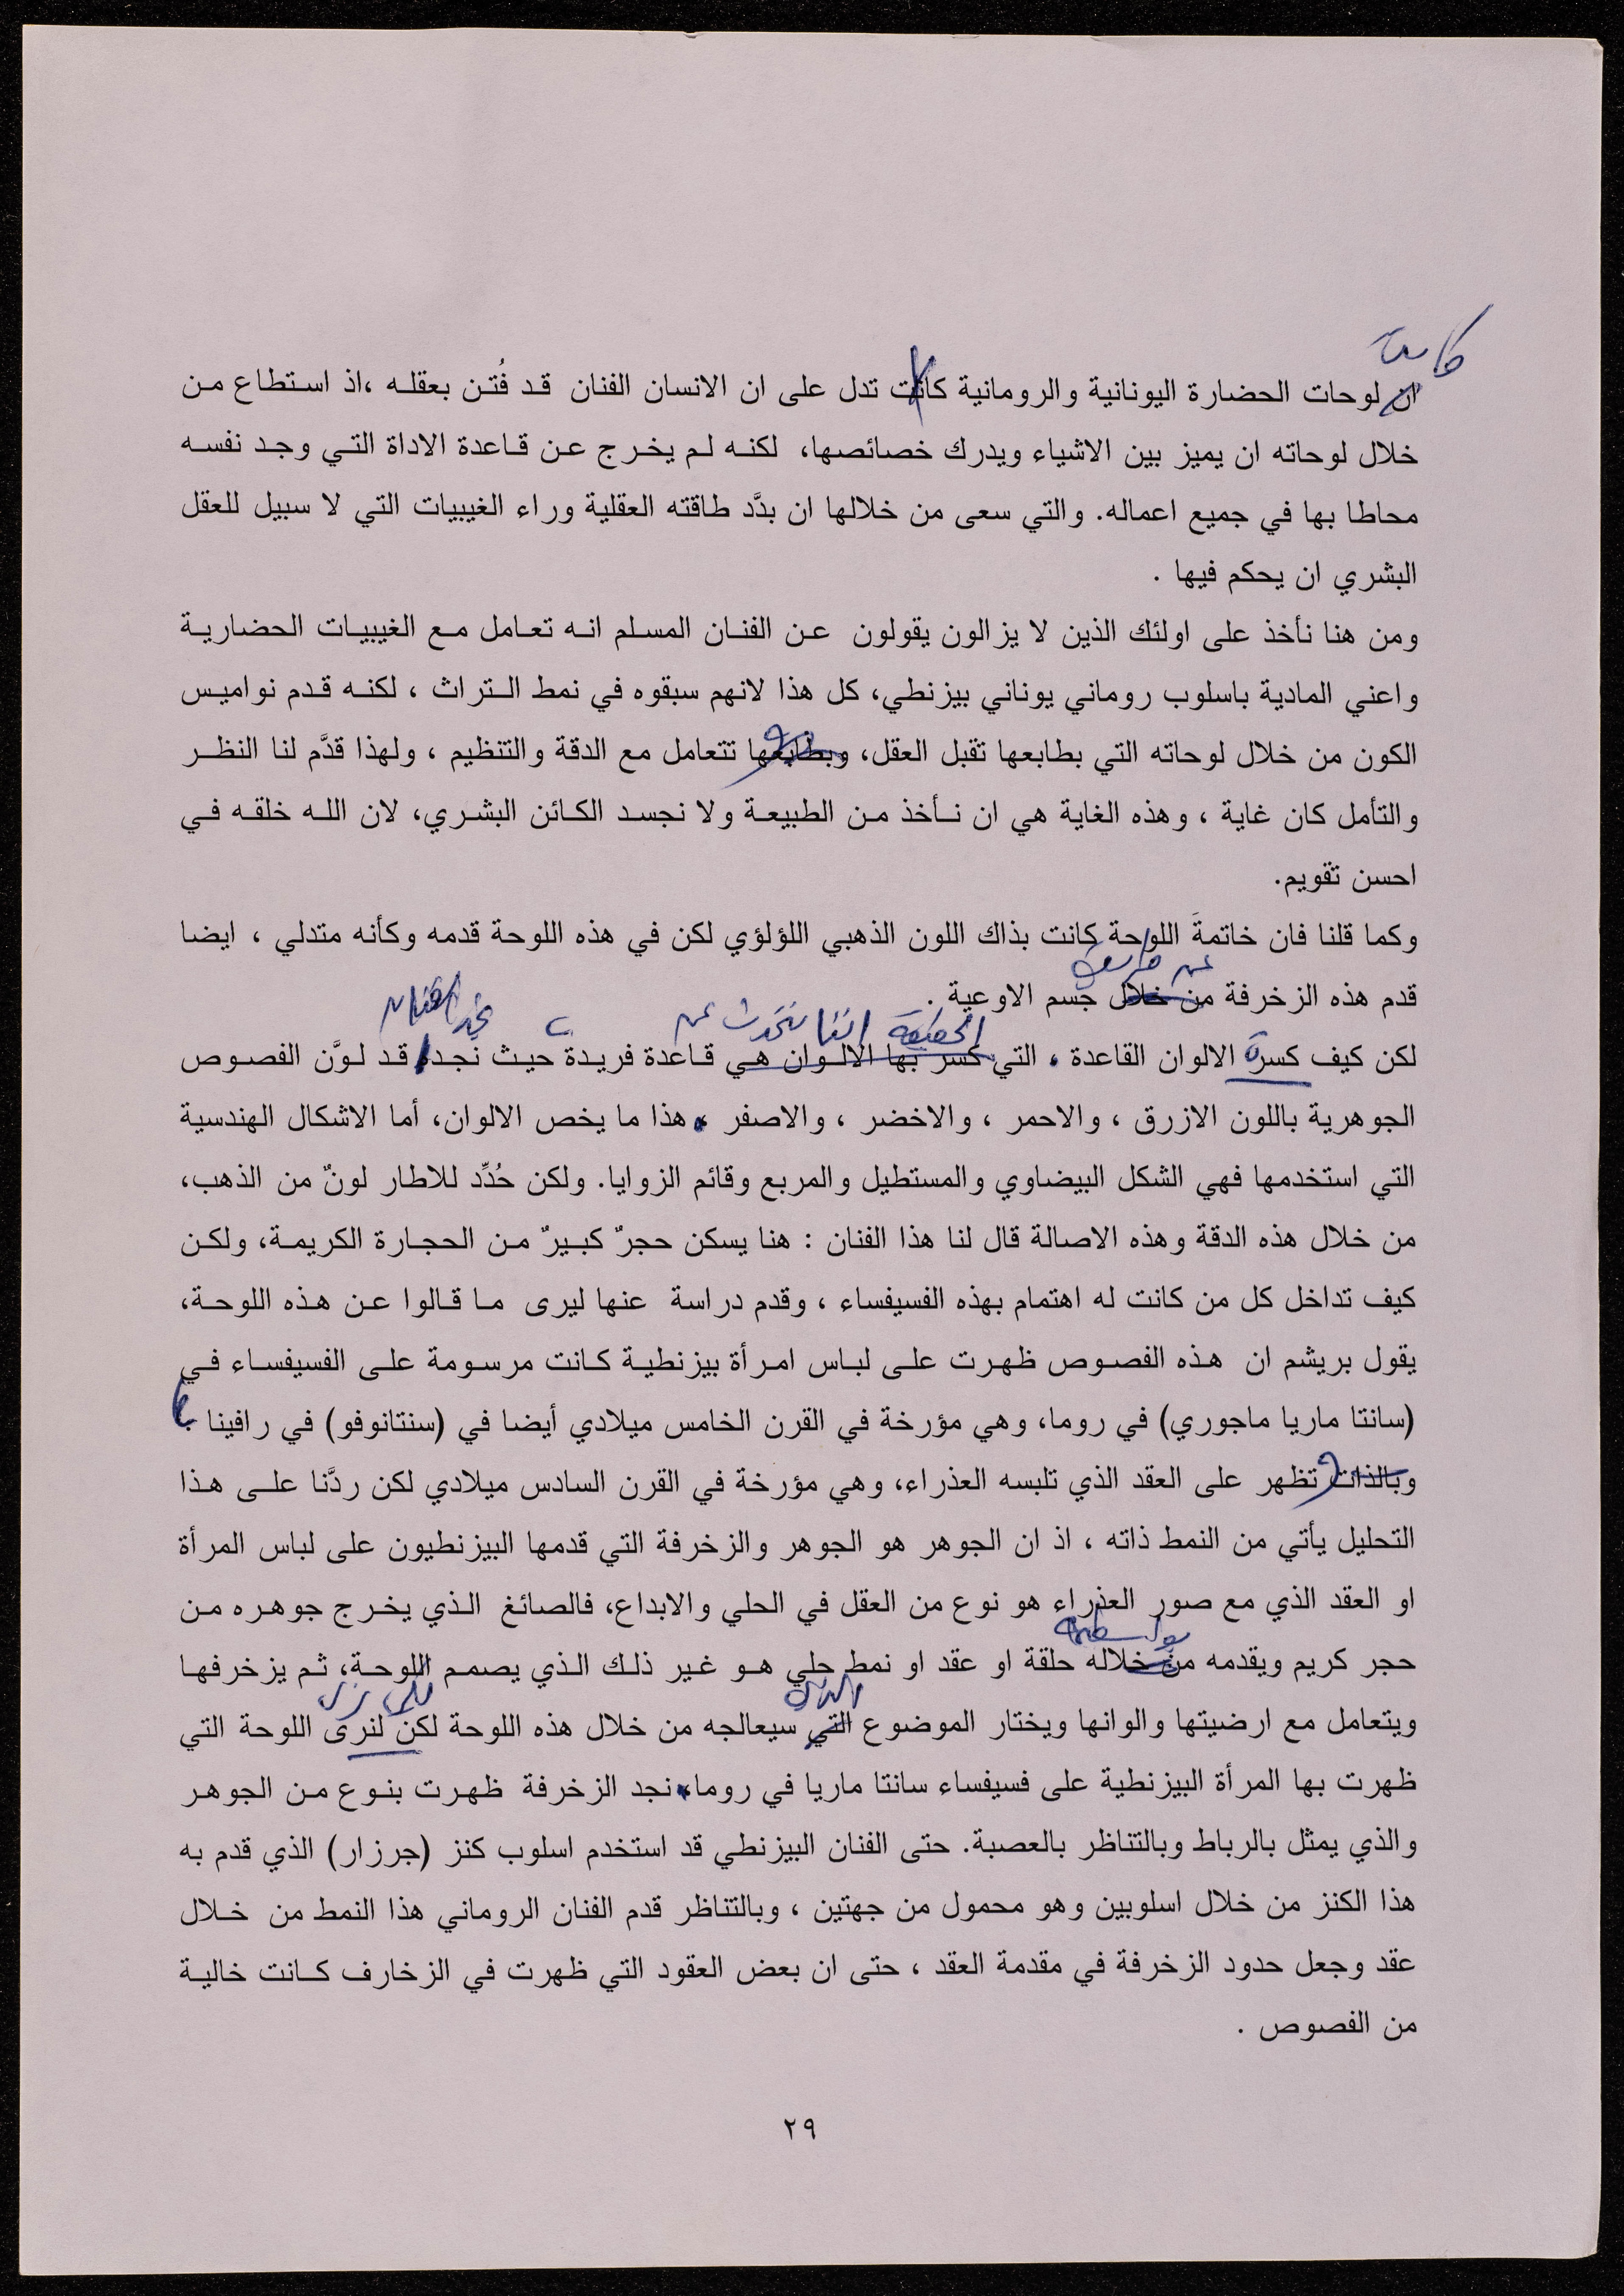 كانت
ان لوحات الحضارة اليونانية والرومانية كانت تدل على ان الانسان الفنان قد فُتن بعقله ،اذ استطاع من
خلال لوحاته ان يميز بين الاشياء ويدرك خصائصها، لكنه لم يخرج عن قاعدة الاداة التي وجد نفسه
محاطا بها في جميع اعماله. والتي سعى من خلالها ان بدَّد طاقته العقلية وراء الغيبيات التي لا سبيل للعقل
البشري ان يحكم فيها .
ومن هنا نأخذ على اولئك الذين لا يزالون يقولون عن الفنان المسلم انه تعامل مع الغيبيات الحضارية
واعني المادية باسلوب روماني يوناني بيزنطي، كل هذا لانهم سبقوه في نمط التراث ، لكنه قدم نواميس
الكون من خلال لوحاته التي بطابعها تقبل العقل، وبطابعها تتعامل مع الدقة والتنظيم ، ولهذا قدَّم لنا النظر
والتأمل كان غاية ، وهذه الغاية هي ان نأخذ من الطبيعة ولا نجسد الكائن البشري، لان الله خلقه في
احسن تقويم.
وكما قلنا فان خاتمةَ اللوحة كانت بذاك اللون الذهبي اللؤلؤي لكن في هذه اللوحة قدمه وكأنه متدلي ، ايضا
عن طريق
قدم هذه الزخرفة من خلال جسم الاوعية .
الحقيقة اننا نتحدث عن نجد الفنان
لكن كيف كسرة الالوان القاعدة . التي كسر بها الالوان هي قاعدة فريدة حيث نجد قد لوَّن الفصوص
الجوهرية باللون الازرق ، والاحمر ، والاخضر ، والاصفر ، هذا ما يخص الالوان، أما الاشكال الهندسية
التي استخدمها فهي الشكل البيضاوي والمستطيل والمربع وقائم الزوايا. ولكن حُدِّد للاطار لونٌ من الذهب،
من خلال هذه الدقة وهذه الاصالة قال لنا هذا الفنان : هنا يسكن حجرٌ كبيرٌ من الحجارة الكريمة، ولكن
كيف تداخل كل من كانت له اهتمام بهذه الفسيفساء ، وقدم دراسة عنها ليرى ما قالوا عن هذه اللوحة،
يقول بريشم ان هذه الفصوص ظهرت على لباس امرأة بيزنطية كانت مرسومة على الفسيفساء في
(سانتا ماريا ماجوري) في روما، وهي مؤرخة في القرن الخامس ميلادي أيضا في (سنتانوفو) في رافينا
وبالذات تظهر على العقد الذي تلبسه العذراء، وهي مؤرخة في القرن السادس ميلادي لكن ردَّنا على هذا
التحليل يأتي من النمط ذاته ، اذ ان الجوهر هو الجوهر والزخرفة التي قدمها البيزنطيون على لباس المرأة
او العقد الذي مع صور العذراء هو نوع من العقل في الحلي والابداع، فالصائغ الذي يخرج جوهره من
بواسطته
حجر كريم ويقدمه من خلاله حلقة او عقد او نمط حلي هو غير ذلك الذي يصمم اللوحة، ثم يزخرفها
الذي
ويتعامل مع ارضيتها والوانها ويختار الموضوع التي سيعالجه من خلال هذه اللوحة لكن لنرى اللوحة التي
ظهرت بها المرأة البيزنطية على فسيفساء سانتا ماريا في روما، نجد الزخرفة ظهرت بنوع من الجوهر
والذي يمثل بالرباط وبالتناظر بالعصبة. حتى الفنان البيزنطي قد استخدم اسلوب كنز (جرزار) الذي قدم به
هذا الكنز من خلال اسلوبين وهو محمول من جهتين ، وبالتناظر قدم الفنان الروماني هذا النمط من خلال
عقد وجعل حدود الزخرفة في مقدمة العقد ، حتى ان بعض العقود التي ظهرت في الزخارف كانت خالية
من الفصوص .
٢٩